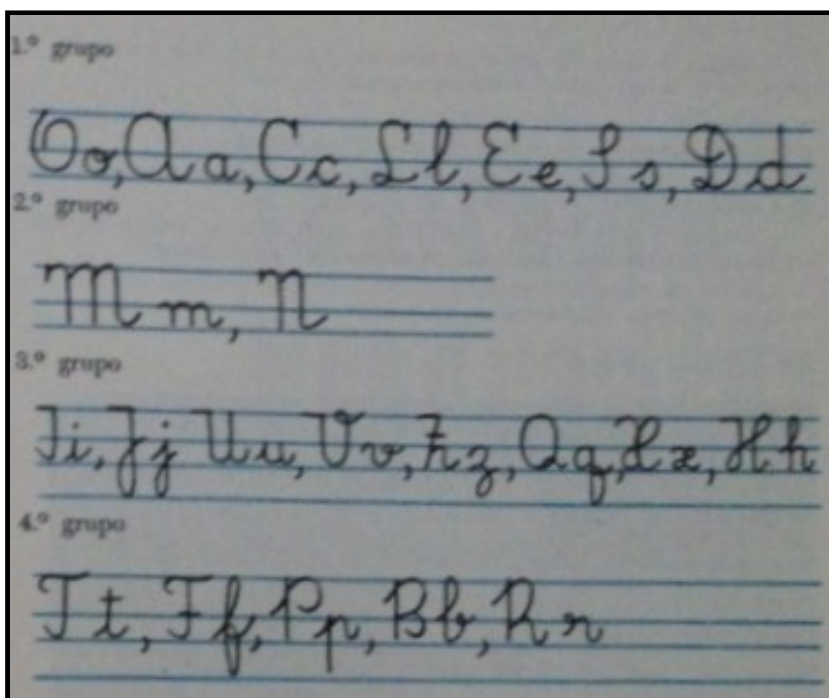 1.º grupo
Oo, Aa, Cc, Ll, Ee, Ss, Dd
2.º grupo
Mm, N
3.º grupo
Ii, Jj Uu, Vv, Zz, Qq, Xx, Hh
4.º grupo
Tt, Ff, Pp, Bb, Rr